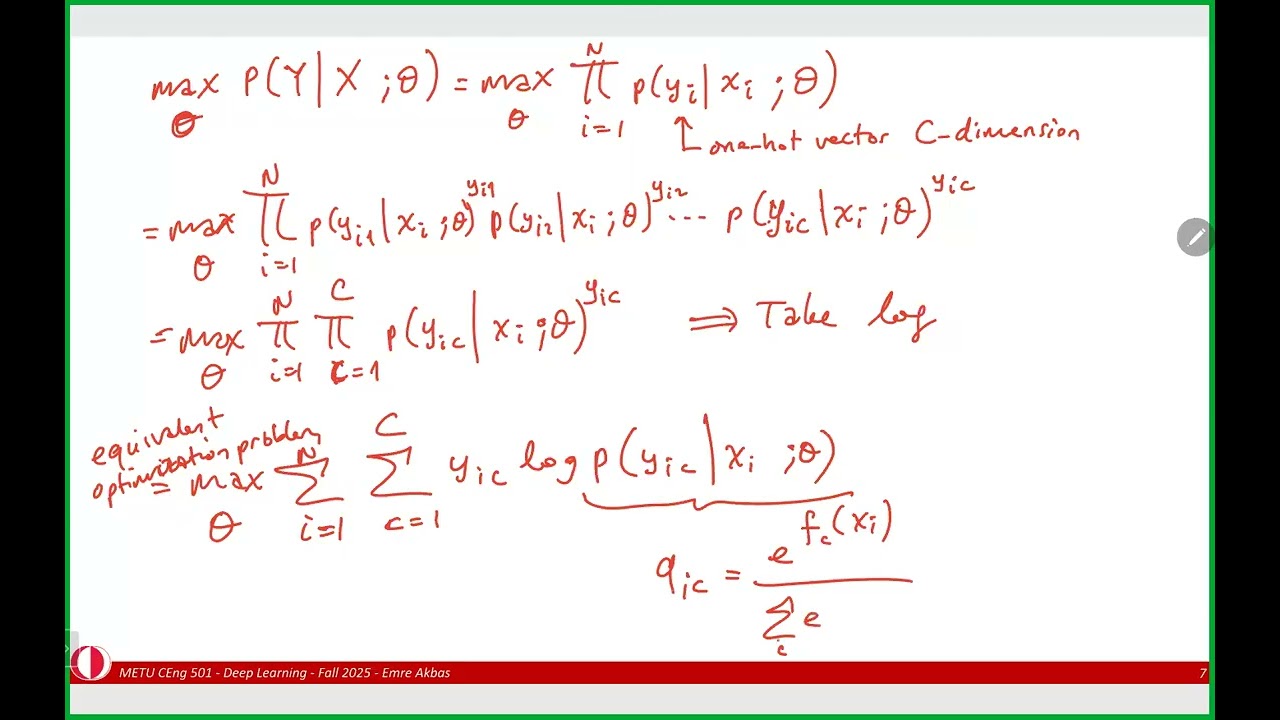 max_θ P(Y | X ; θ) = max_θ ∏_{i=1}^{N} p(y_i | x_i ; θ)
one-hot vector C-dimension
= max_θ ∏_{i=1}^{N} p(y_{i1} | x_i ; θ)^{y_{i1}} p(y_{i2} | x_i ; θ)^{y_{i2}} ... p(y_{ic} | x_i ; θ)^{y_{ic}}
= max_θ ∏_{i=1}^{N} ∏_{c=1}^{C} p(y_{ic} | x_i ; θ)^{y_{ic}} ⟹ Take log
equivalent
optimization problem
= max_θ ∑_{i=1}^{N} ∑_{c=1}^{C} y_{ic} log p(y_{ic} | x_i ; θ)
q_{ic} = e^{f_c(x_i)} / ∑_c e
METU CEng 501 - Deep Learning - Fall 2025 - Emre Akbas 7